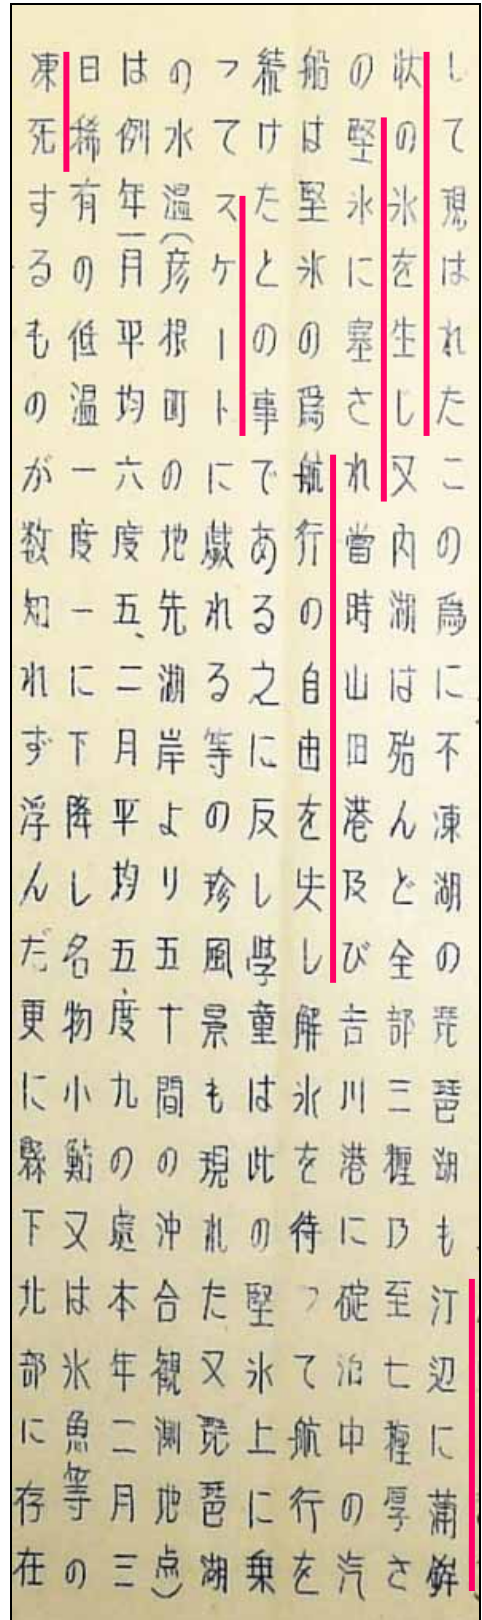 して現はれたこの爲に不凍湖の琵琶湖も汀辺に蒲鉾
状の氷を生し又内湖は殆んど全部三糎乃至七糎厚さ
の堅氷に塞され當時山田港及び吉川港に碇泊中の汽
船は堅氷の爲航行の自由を失し解氷を待つて航行を
続けたとの事である之に反し學童は此の堅氷上に乗
つてスケートに戯れる等の珍風景も現れた又琵琶湖
の水温(彦根町の地先湖岸より五十間の沖合観測地点)
は例年一月平均六度五、二月平均五度九の處本年二月三
日稀有の低温一度一に下降し名物小鮎又は氷魚等の
凍死するものが数知れず浮んだ更に縣下北部に存在